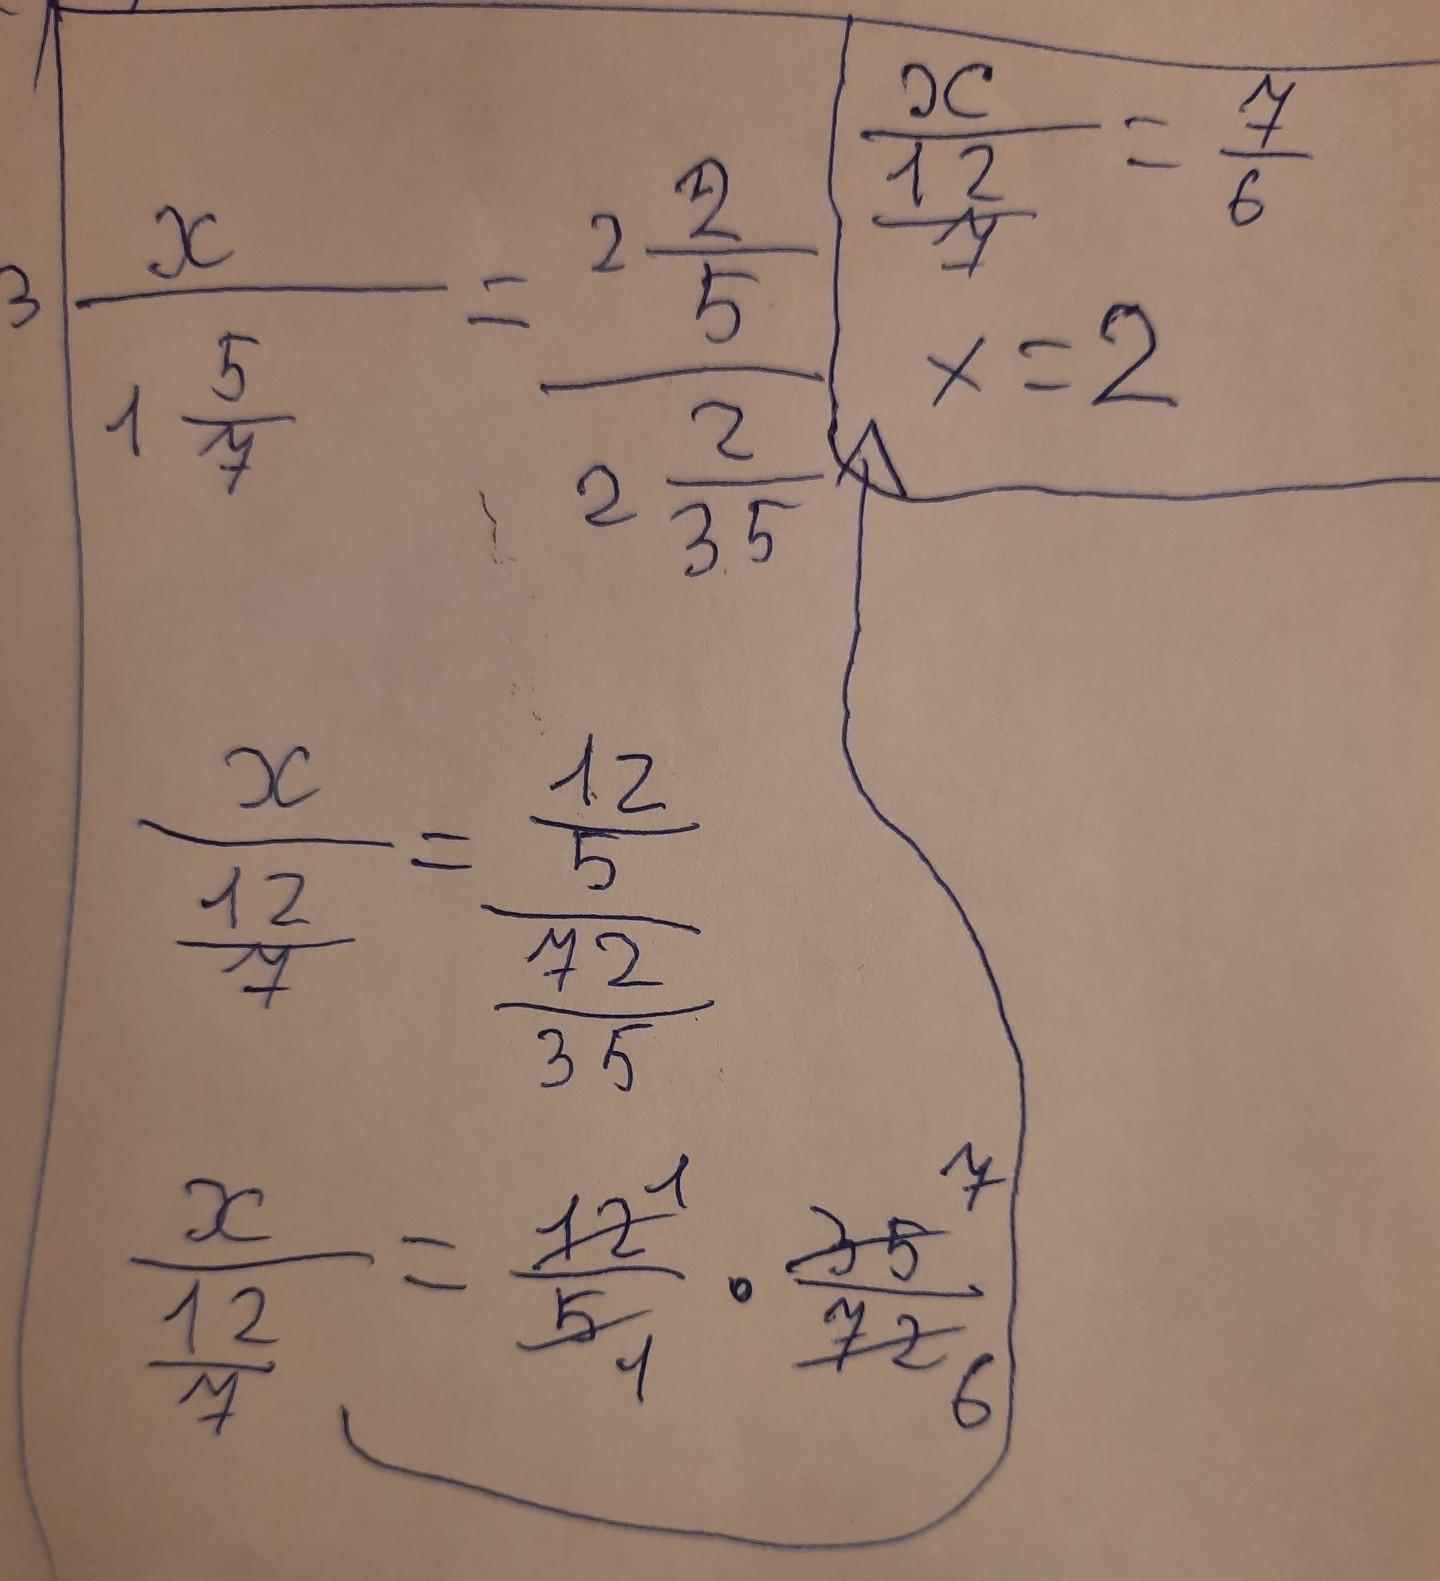 3
x / 1 5/7 = 2 2/5 / 2 2/35
x / 12/7 = 12/5 / 72/35
x / 12/7 = 12/5 1 1 · 35/72 7 6
x / 12/7 = 7/6
x = 2